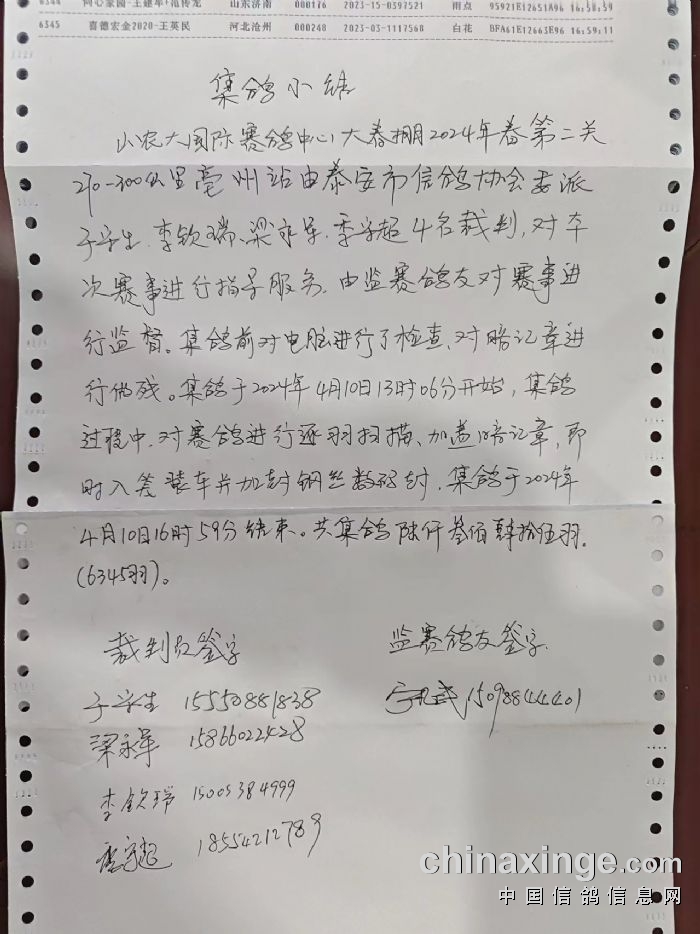 6344 同心家园-王建军/范传龙 山东济南 000176 2023-15-0397521 雨点 95921E12651A96 16:58:59
6345 喜德宏金2020-王英民 河北沧州 000248 2023-03-1117568 白花 BFA61E12663E96 16:59:11
集鸽小结
山农大国际赛鸽中心大春棚2024年春第二关
270-300公里亳州站由泰安市信鸽协会委派
于学生、李钦瑞、梁永军、季宇超4名裁判,对本
次赛事进行指导服务.由监赛鸽友对赛事进
行监督。集鸽前对电脑进行了检查、对暗记章进
行做残。集鸽于2024年4月10日13时06分开始,集鸽
过程中,对赛鸽进行逐羽扫描、加盖暗记章,即
时入笼装车并加封钢丝数码封.集鸽于2024年
4月10日16时59分结束。共集鸽陆仟叁佰肆拾伍羽.
(6345羽)。
裁判员签字
监赛鸽友签字.
于学生 15550881838
15098844401
梁永军 15866022428
李钦瑞 15005384999
18554212789
chinaxinge.com
中国信鸽信息网